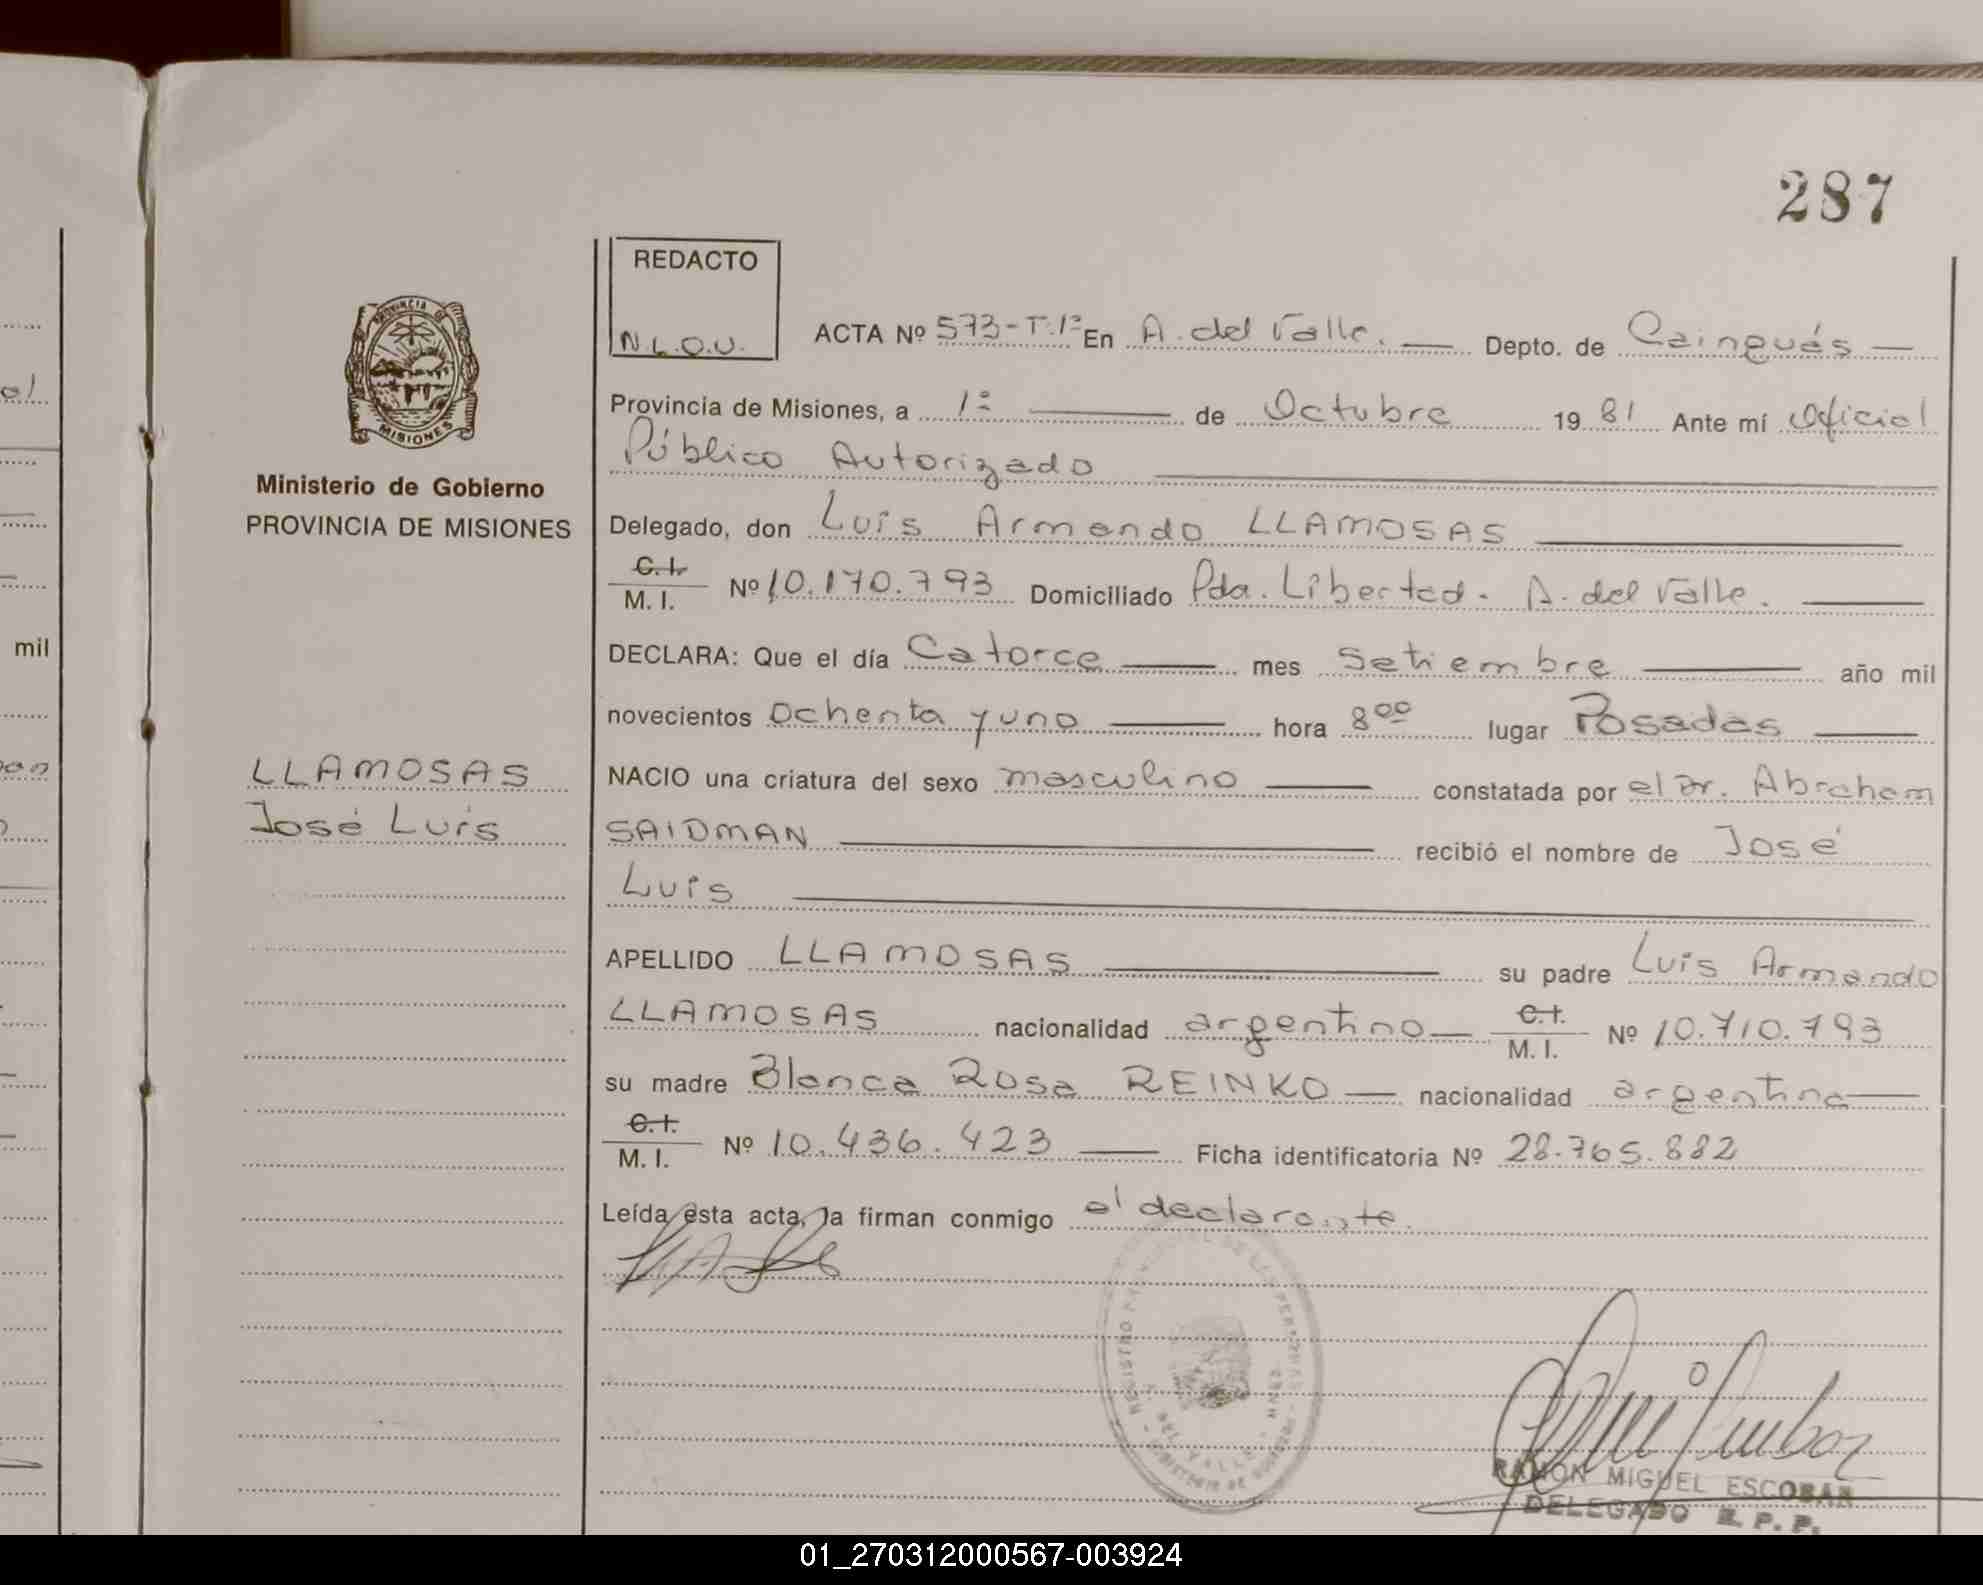 287
REDACTO
N.L.O.U.
ACTA Nº 573-T.1º En A. del Valle. Depto. de Cainguás
Provincia de Misiones, a 1º de Octubre 1981 Ante mí Oficial
Público Autorizado
Delegado, don Luis Armando LLAMOSAS
C.I. M.I. Nº 10.170.793 Domiciliado Pda. Libertad. A. del Valle.
DECLARA: Que el día Catorce mes Setiembre año mil
novecientos Ochenta y uno hora 8 00 lugar Posadas
NACIO una criatura del sexo masculino constatada por el Dr. Abraham
SAIDMAN recibió el nombre de José
Luis
APELLIDO LLAMOSAS su padre Luis Armando
LLAMOSAS nacionalidad argentino C.I. M.I. Nº 10.710.793
su madre Blanca Rosa REINKO nacionalidad argentina
C.I. M.I. Nº 10.436.423 Ficha identificatoria Nº 28.765.882
Leída esta acta, la firman conmigo el declarante.
PROVINCIA DE
MISIONES
Ministerio de Gobierno
PROVINCIA DE MISIONES
LLAMOSAS
José Luis
mil
RAMON MIGUEL ESCOBAR
DELEGADO R. P. P.
01_270312000567-003924